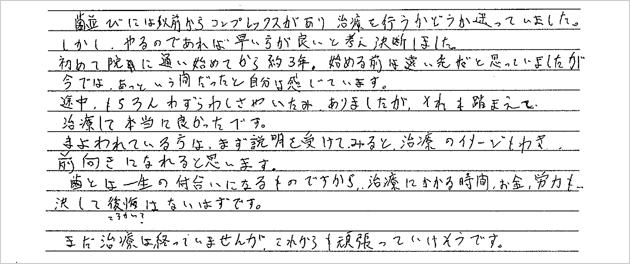 歯並びには以前からコンプレックスがあり治療を行うかどうか迷っていました。
しかし、やるのであれば早い方が良いと考え決断しました。
初めて院長に通い始めてから約3年。始める前は遠い先だと思っていましたが
今では、あっという間だったと自分は感じています。
途中、もちろんわずらわしさやいたみ、ありましたが、それも踏まえて
治療して本当に良かったです。
まよわれている方は、まず説明を受けてみると、治療のイメージもわき、
前向きになれると思います。
歯とは一生の付合いになるものですから、治療にかかる時間、お金、労力も、
決して後悔はないはずです。
こうかい?
まだ治療は終っていませんが、これからも頑張っていけそうです。